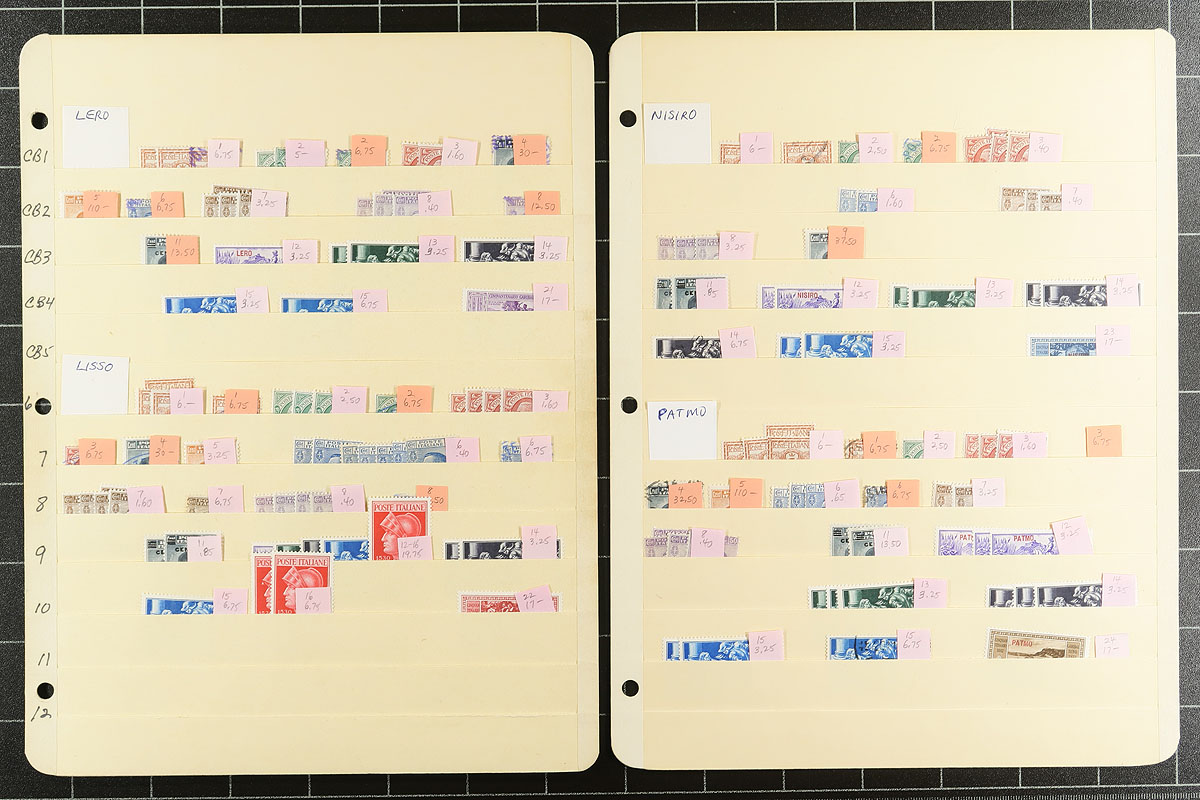 LERO
CB1
1 6.75
2 5-
2 6.75
3 1.60
4 30-
CB2
5 110-
6 6.75
7 3.25
8 .40
8 12.50
CB3
11 13.50
LERO
12 3.25
13 3.25
14 3.25
CB4
15 3.25
15 6.75
21 17-
CB5
LISSO
6
1 6.-
1 6.75
2 2.50
2 6.75
3 1.60
7
3 6.75
4 30-
5 3.25
6 .40
6 6.75
8
7 1.60
7 6.75
8 .40
8
POSTE ITALIANE
1530
12-16 19.75
9
11 .85
14 3.25
10
15 6.75
1530
16 6.75
22 17-
11
12
NISIRO
1 6-
2 2.50
2 6.75
3 .40
6 1.60
7 .40
8 3.25
9 37.50
11 .85
NISIRO
12 3.25
13 3.25
14 3.25
14 6.75
15 3.25
23 17-
PATMO
1 6-
1 6.75
2 2.50
3 1.60
3 6.75
4 32.50
5 110-
6 .65
6 6.75
7 3.25
8 .40
11 13.50
PATMO
12 3.25
13 3.25
14 3.25
15 3.25
15 6.75
PATMO
24 17-